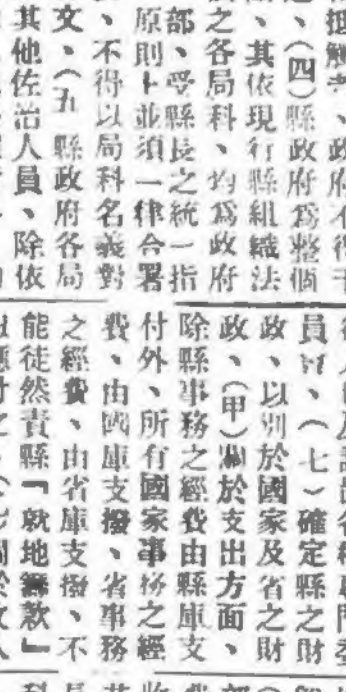 抵觸者、政府不得干
、（四）縣政府爲整個
、其依現行縣組織法
之各局科、均爲政府
部、受縣長之統一指
原則上並須一律合署
、不得以局科名義對
文、（五 縣政府各局
其他佐治人員、除依
員 、（七）確定縣之財
政、以別於國家及省之財
政、（甲）關於支出方面、
除縣事務之經費由縣庫支
付外、所有國家事務之經
費、由國庫支撥、省事務
之經費、由省庫支撥、不
能徒然責縣「就地籌款」